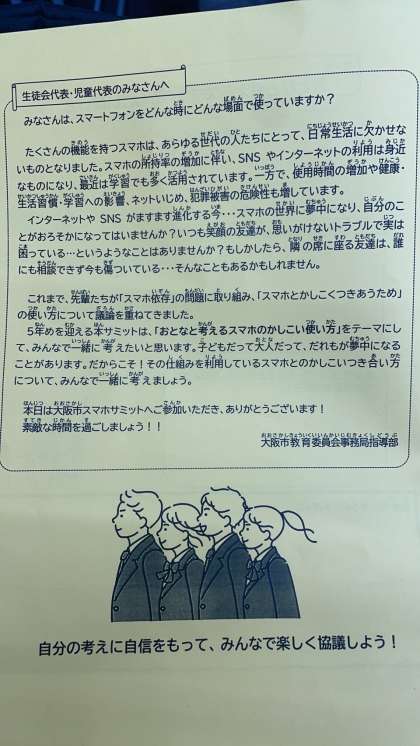 生徒会代表・児童代表のみなさんへ
みなさんは、スマートフォンをどんな時にどんな場面で使っていますか？
たくさんの機能を持つスマホは、あらゆる世代の人たちにとって、日常生活に欠かせな
いものとなりました。スマホの所持率の増加に伴い、SNS やインターネットの利用は身近
なものになり、最近は学習でも多く活用されています。一方で、使用時間の増加や健康・
生活習慣・学習への影響、ネットいじめ、犯罪被害の危険性も増しています。
インターネットや SNS がますます進化する今・・・スマホの世界に夢中になり、自分のこ
とがおろそかになってはいませんか？いつも笑顔の友達が、思いがけないトラブルで実は
困っている・・・というようなことはありませんか？もしかしたら、隣の席に座る友達は、誰
にも相談できず今も傷ついている・・・そんなこともあるかもしれません。
これまで、先輩たちが「スマホ依存」の問題に取り組み、「スマホとかしこくつきあうため」
の使い方について議論を重ねてきました。
５年めを迎える本サミットは、「おとなと考えるスマホのかしこい使い方」をテーマにし
て、みんなで一緒に考えたいと思います。子どもだって大人だって、だれもが夢中になる
ことがあります。だからこそ！その仕組みを利用しているスマホとのかしこいつき合い方
について、みんなで一緒に考えましょう。
本日は大阪市スマホサミットへご参加いただき、ありがとうございます！
素敵な時間を過ごしましょう！！
大阪市教育委員会事務局指導部
自分の考えに自信をもって、みんなで楽しく協議しよう！